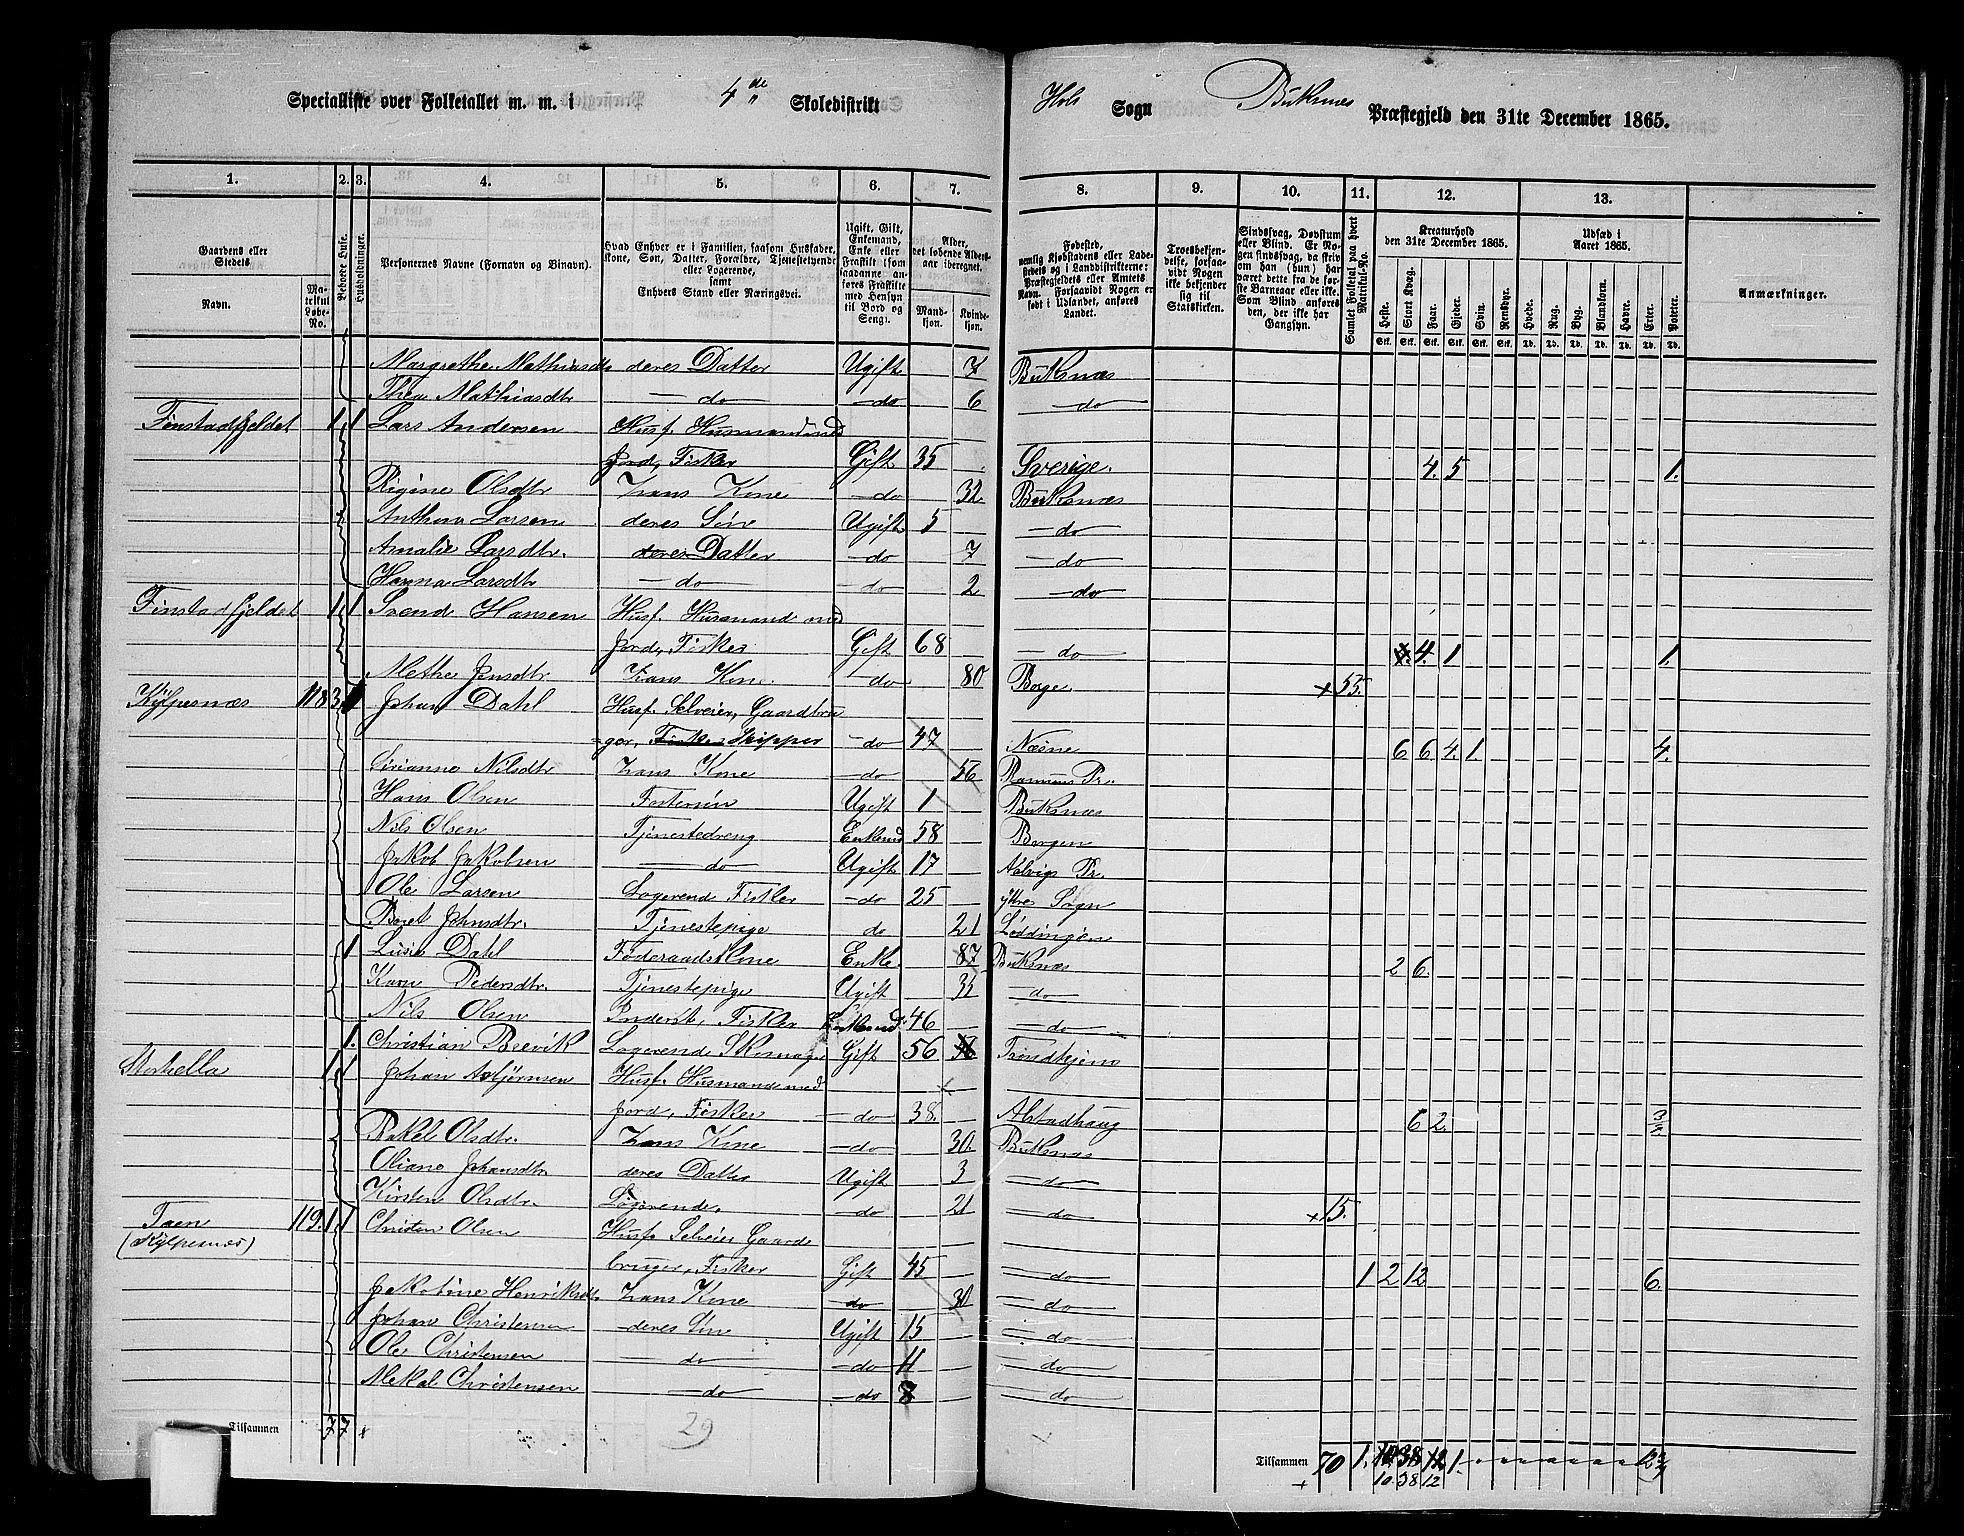 Specialliste over Folketallet m. m. i 4de Skoledistrikt Hols Sogn Buksnes Præstegjeld den 31te December 1865.
1. 2. 3. 4. 5. 6. 7. 8. 9. 10. 11. 12. 13.
Gaardens eller Stedets
Navn.
Matrikul Løbe-No.
Beboede Huse.
Husholdninger.
Personernes Navne (Fornavn og Binavn).
Hvad Enhver er i Familien, saasom Husfader, Kone, Søn, Datter, Forældre, Tjenestetyende eller Logerende, samt Enhvers Stand eller Næringsvei.
Ugift, Gift, Enkemand, Enke eller Fraskilt
Alder, det løbende Aldersaar iberegnet.
Mandkjøn.
Kvindekjøn.
Fødested,
Troesbekjendelse, forsaavidt Nogen ikke bekjender sig til Statskirken.
Sindssvag, Døvstum eller Blind.
Samlet Folketal paa hvert Matrikul-No.
Kreaturhold den 31te December 1865.
Udsæd i Aaret 1865.
Heste. Stort Kvæg. Faar. Gjeder. Svin. Rensdyr. Hvede. Rug. Byg. Blandkorn. Havre. Erter. Poteter.
Anmærkninger.
Margrethe Mathiasdtr deres Datter Ugift 7 Buksnæs
Thea Mathiasdtr — do — — do 6 — do —
Finstadfjeldet 1 1 Lars Andersen Husf. Husmand med
Jord, Fisker Gift 35 Sverige. 4. 5 1.
Rigine Olsdtr Hans Kone — do 32. Buksnæs
Anthon Larsen deres Søn Ugift 5 — do —
Amalie Larsdtr. deres Datter — do 7 — do —
Hanna Larsdtr — do — — do 2 — do —
Finstadfjeldet 1 1 Svend Hansen Husf. Husmand med
Jord, Fisker Gift 68 — do — 4. 1 1.
Methe Jensdtr Hans Kone — do 80 Borge + 55.
Kylpesnæs 118 3 1 Johan Dahl Husf. Selveier, Gaardbru
ger, Fisker Skipper — do 47 Næsne 6 6 4 1. 4.
Sirianne Nilsdtr Hans Kone — do 56 Ramnus Pr.
Hans Olsen Fostersøn Ugift 1 Buksnæs
Nils Olsen Tjenestedreng Enkemd 58 Bergen
Jakob Jakobsen — do Ugift 17 Pr.
Ole Larsen Logerende Fisker — do 25 Ytre Sogn
Beret Johnsdtr. Tjenestepige do 21 Løddingen
1 Lusie Dahl Føderaadskone Enke. 87 Buksnæs 2 6.
Karn Pedersdtr. Tjenestepige Ugift 32 — do —
Nils Olsen Inderst, Fisker Enkemd. 46 — do —
1. Christian Brevik Logerende Skomager Gift 56 Trondhjem
Storhella 1 1 Johan Asbjørnsen Husf. Husmand med
Jord, Fisker — do 38. Alstadhaug 6 2.
Rakel Olsdtr. Hans Kone — do 30. Buksnæs
Oliane Johansdtr deres Datter Ugift 3 — do —
Kirsten Olsdtr. Logerende. — do 21 — do — + 15.
Taen 119. 1. 1 Christen Olsen Husf. Selveier Gaard
(Kylpesnæs) bruger, Fisker Gift 45 — do — 1 2 12 6.
Jakobine Henriksdtr Hans Kone — do 30 — do —
Johan Christensen deres Søn Ugift 15 — do —
Ole Christensen — do — — do 11 — do —
Mekal Christensen — do — — do 8 — do —
Tilsammen 7 7 29 Tilsammen 70 1. 38 12 1
10 38 12